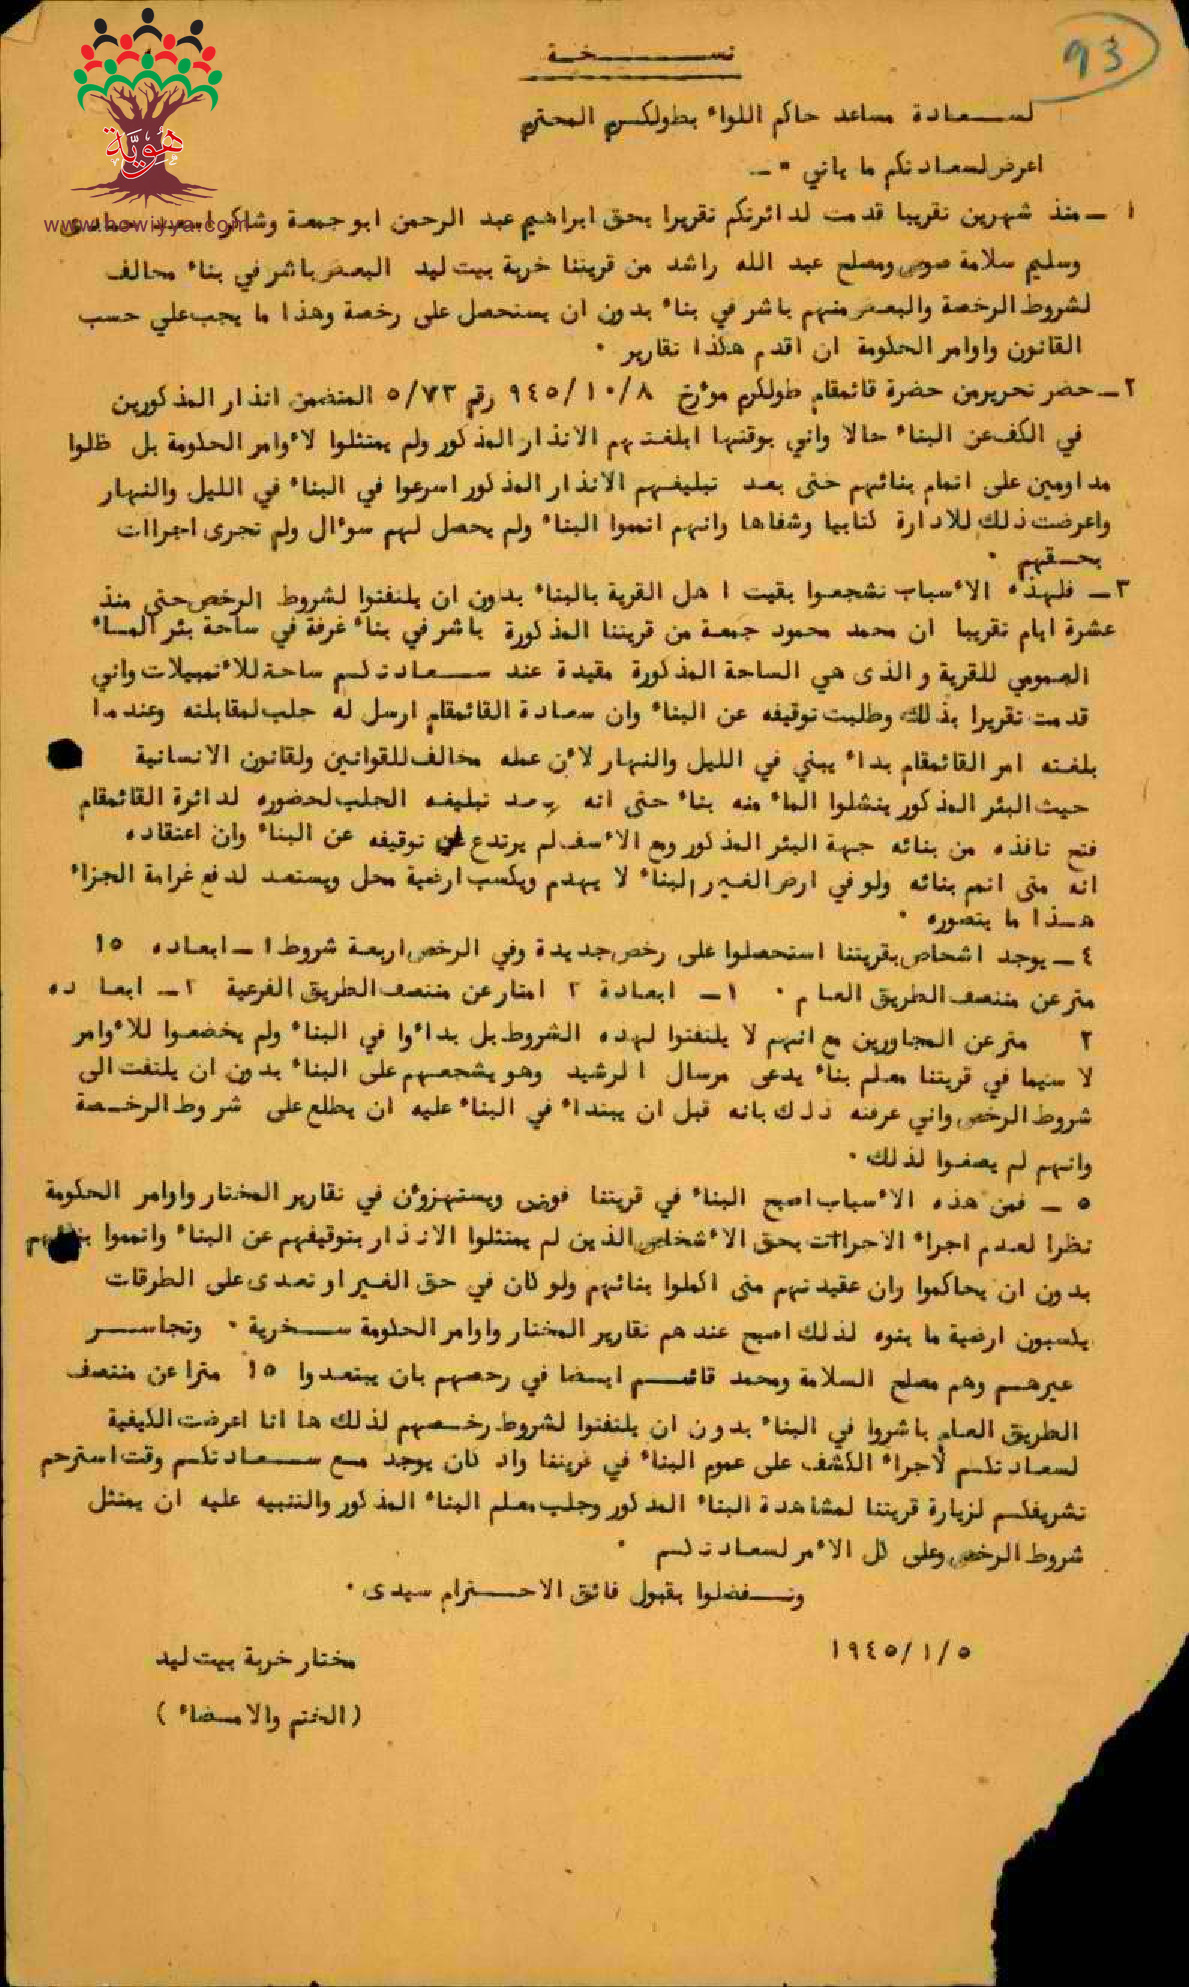 93
نسخة
لسعادة مساعد حاكم اللواء بطولكرم المحترم
اعرض لسعادتكم ما ياتي :ـ
هُوِيَّة
www.howiyya.com
١ ـ منذ شهرين تقريبا قدمت لدائرتكم تقريرا بحق ابراهيم عبد الرحمن ابو جمعة وشاكر اسعد
وسليم سلامة صوص ومصلح عبد الله راشد من قريتنا خربة بيت ليد البعض باشر في بناء مخالف
لشروط الرخصة والبعض منهم باشر في بناء بدون ان يستحصل على رخصة وهذا ما يجب علي حسب
القانون واوامر الحكومة ان اقدم هكذا تقارير ٠
٢ ـ حضر تحرير من حضرة قائمقام طولكرم مؤرخ ٩٤٥/١٠/٨ رقم ٥/٧٣ المتضمن انذار المذكورين
في الكف عن البناء حالا واني بوقتها ابلغتهم الانذار المذكور ولم يمتثلوا لأوامر الحكومة بل ظلوا
مداومين على اتمام بنائهم حتى بعد تبليغهم الانذار المذكور اسرعوا في البناء في الليل والنهار
واعرضت ذلك للادارة كتابيا وشفاها وانهم اتمموا البناء ولم يحصل لهم سؤال ولم تجرى اجراات
بحقهم ٠
٣ ـ فلهذه الأسباب تشجعوا بقيت اهل القرية بالبناء بدون ان يلتفتوا لشروط الرخص حتى منذ
عشرة ايام تقريبا ان محمد محمود جمعة من قريتنا المذكورة باشر في بناء غرفة في ساحة بئر الماء
العمومي للقرية والذى هي الساحة المذكورة مقيدة عند سعادتكم ساحة للأتمبيلات واني
قدمت تقريرا بذلك وطلبت توقيفه عن البناء وان سعادة القائمقام ارسل له جلب لمقابلته وعندما
بلغته امر القائمقام بداء يبني في الليل والنهار لأن عمله مخالف للقوانين ولقانون الانسانية
حيث البئر المذكور ينشلوا الماء منه بناء حتى انه بعد تبليغه الجلب لحضوره لدائرة القائمقام
فتح نافذه من بنائه جهة البئر المذكور ومع الأسف لم يرتدع عن توقيفه عن البناء وان اعتقاده
انه متى اتمم بنائه ولو في ارض الغير البناء لا يهدم ويكسب ارضية محل ويستعد لدفع غرامة الجزاء
هذا ما يتصوره ٠
٤ ـ يوجد اشخاص بقريتنا استحصلوا على رخص جديدة وفي الرخص اربعة شروط ١ ـ ابعاده ١٥
متر عن منتصف الطريق العام ٠ ١ ـ ابعادة ٢ امتار عن منتصف الطريق الفرعية ٢ ـ ابعاده
٢ متر عن المجاورين مع انهم لا يلتفتوا لهده الشروط بل بداءوا في البناء ولم يخضعوا للأوامر
لا سيما في قريتنا معلم بناء يدعى مرسال الرشيد وهو يشجعهم على البناء بدون ان يلتفت الى
شروط الرخص واني عرفته ذلك بانه قبل ان يبتداء في البناء عليه ان يطلع على شروط الرخصة
وانهم لم يصغوا لذلك ٠
٥ ـ فمن هذه الأسباب اصبح البناء في قريتنا فوضى ويستهزؤن في تقارير المختار واوامر الحكومة
نظرا لعدم اجراء الاجراات بحق الأشخاص الذين لم يمتثلوا الانذار بتوقيفهم عن البناء واتمموا بنائهم
بدون ان يحاكموا وان عقيدتهم متى اكملوا بنائهم ولو كان في حق الغير او تعدى على الطرقات
يكسبون ارضية ما بنوه لذلك اصبح عندهم تقارير المختار واوامر الحكومة سخرية ٠ وتجاسر
غيرهم وهم مصلح السلامة ومحمد قاسم ايضا في رخصهم بان يبتعدوا ١٥ مترا عن منتصف
الطريق العام باشروا في البناء بدون ان يلتفتوا لشروط رخصهم لذلك ها انا اعرضت الكيفية
لسعادتكم لأجراء الكشف على عموم البناء في قريتنا واذ كان يوجد مع سعادتكم وقت استرحم
تشريفكم لزيارة قريتنا لمشاهدة البناء المذكور وجلب معلم البناء المذكور والتنبيه عليه ان يمتثل
شروط الرخص وعلى كل الأمر لسعادتكم ٠
وتفضلوا بقبول فائق الاحترام سيدى ٠
١٩٤٥/١/٥
مختار خربة بيت ليد
(الختم والامضاء)